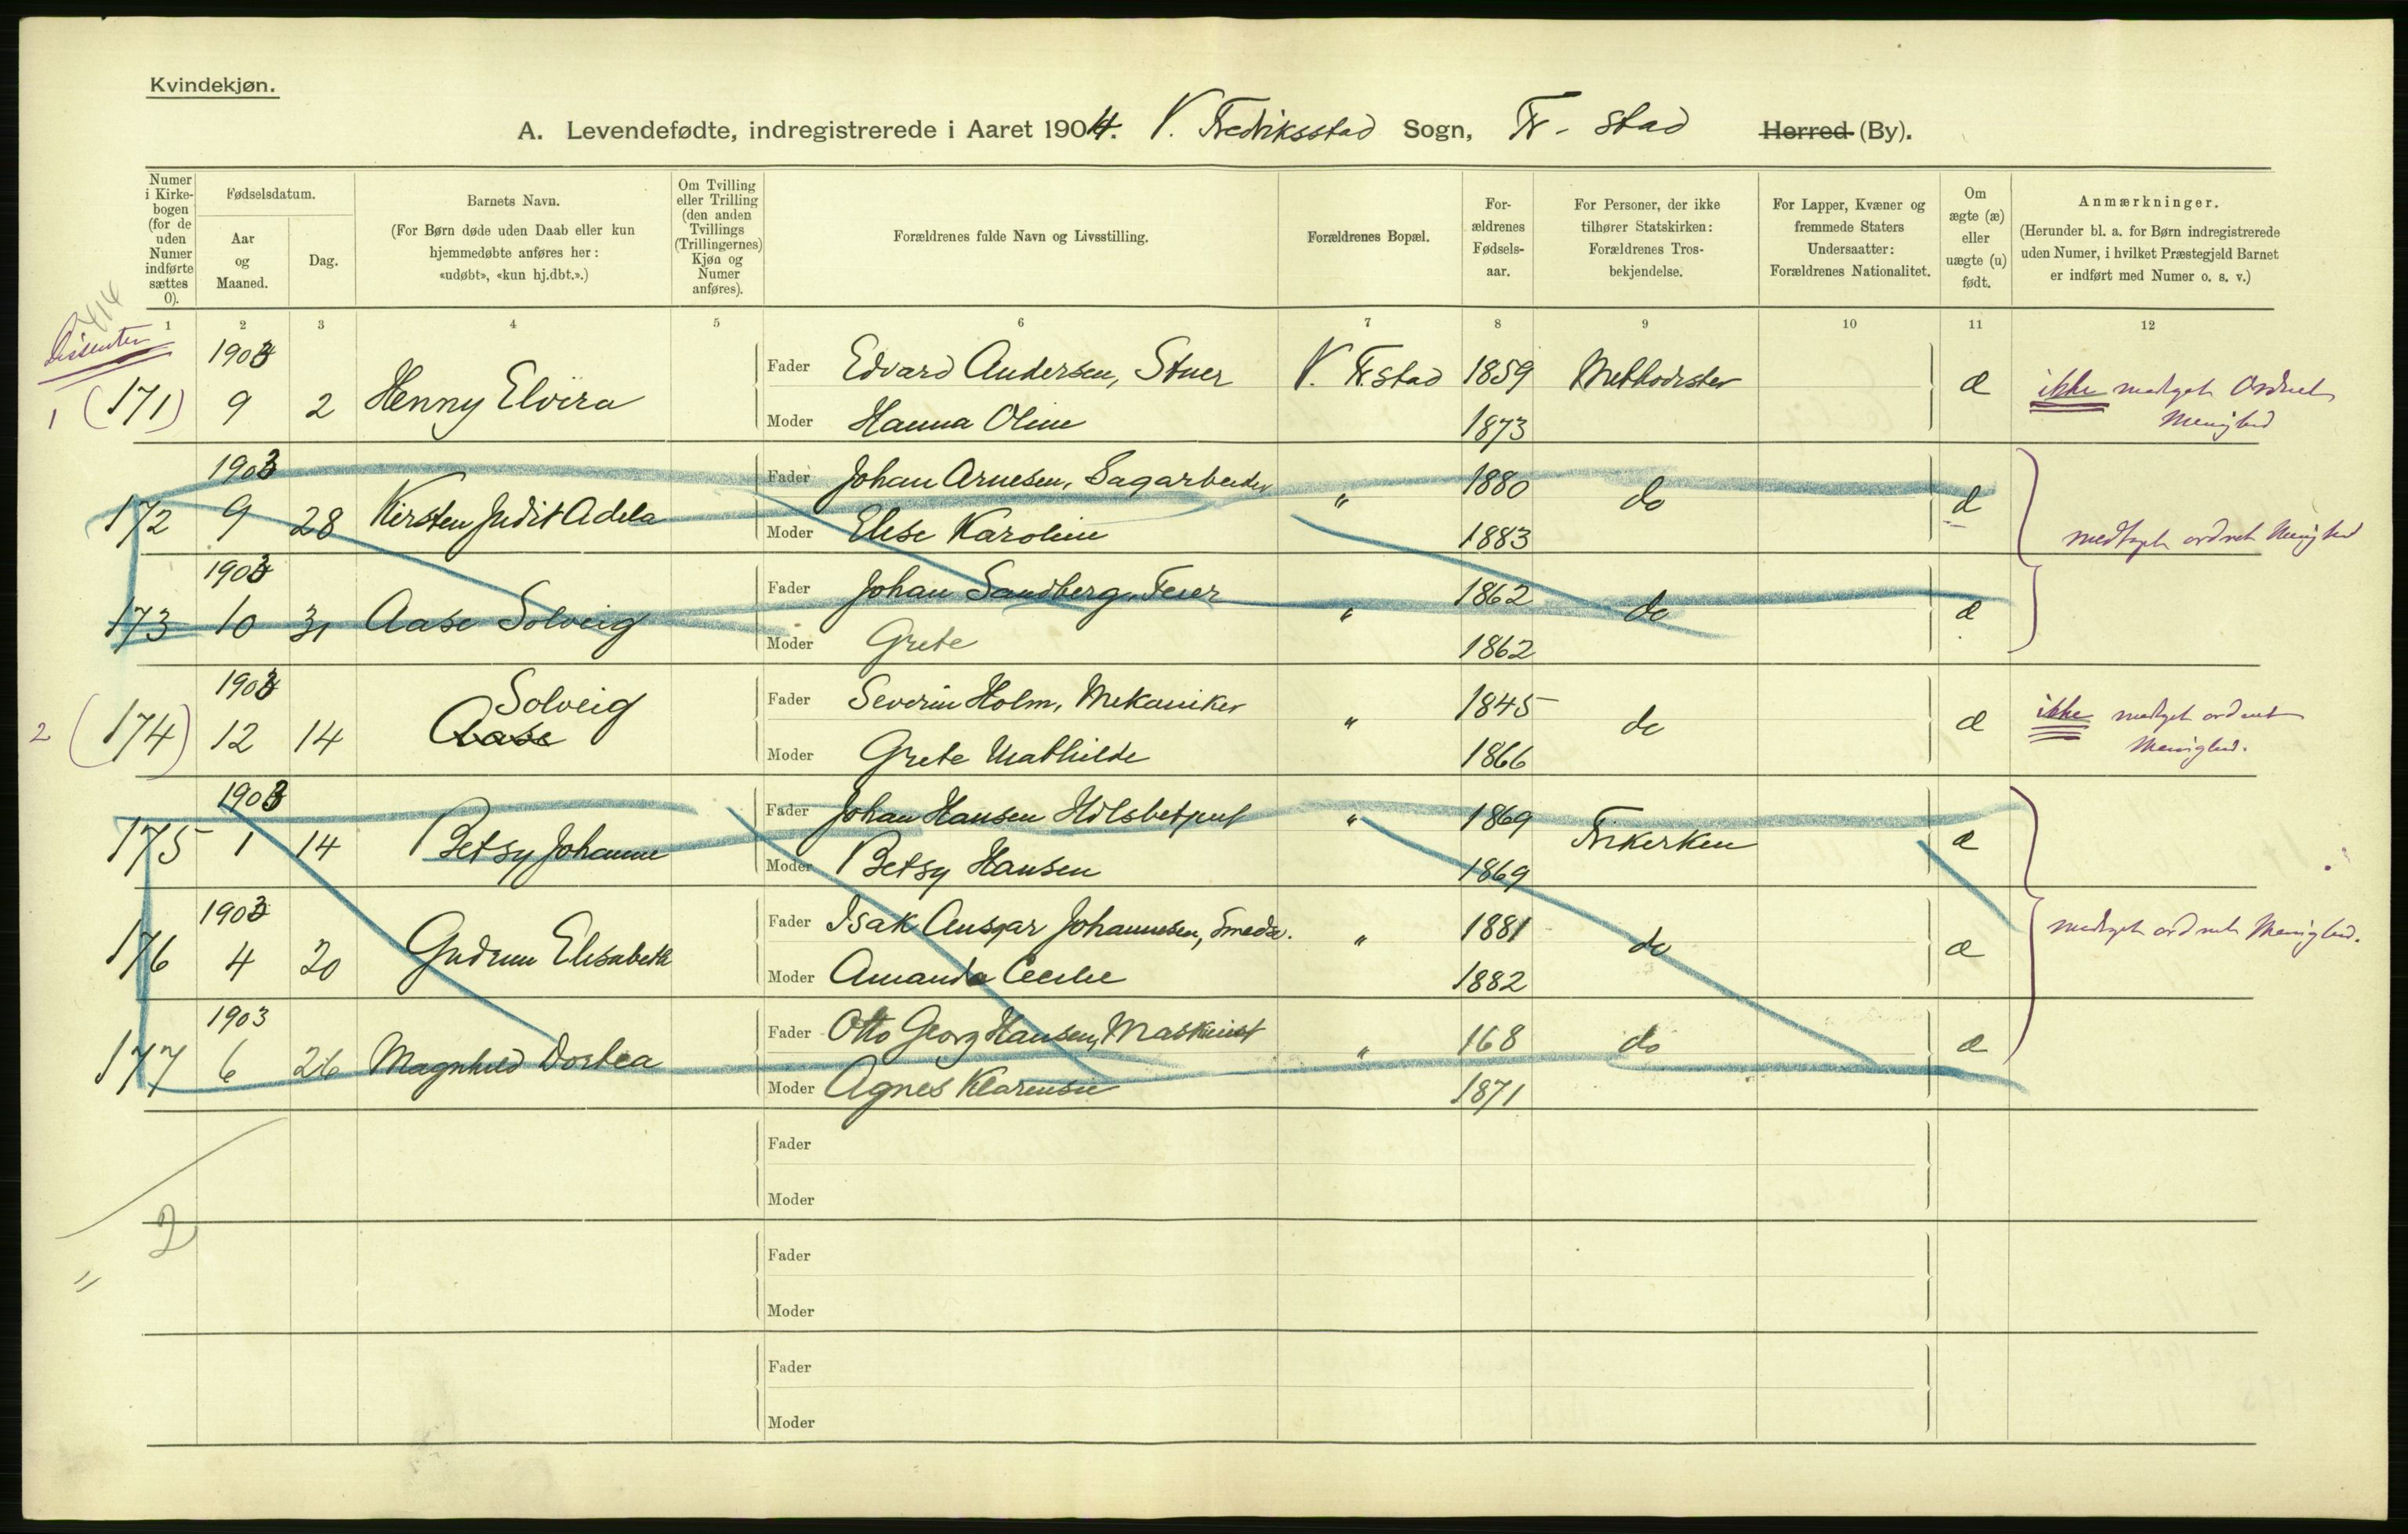 Kvindekjøn.
A. Levendefødte, indregistrerede i Aaret 1904. V. Fredriksstad Sogn, Fr-stad Herred (By).
Numer i Kirkebogen (for de uden Numer indførte sættes 0).
Fødselsdatum.
Aar og Maaned.
Dag.
Barnets Navn.
(For Børn døde uden Daab eller kun hjemmedøbte anføres her: «udøbt», «kun hj.dbt.».)
Om Tvilling eller Trilling (den anden Tvillings (Trillingernes) Kjøn og Numer anføres).
Forældrenes fulde Navn og Livsstilling.
Forældrenes Bopæl.
Forældrenes Fødselsaar.
For Personer, der ikke tilhører Statskirken: Forældrenes Trosbekjendelse.
For Lapper, Kvæner og fremmede Staters Undersaatter: Forældrenes Nationalitet.
Om ægte (æ) eller uægte (u) født.
Anmærkninger.
(Herunder bl. a. for Børn indregistrerede uden Numer, i hvilket Præstegjeld Barnet er indført med Numer o. s. v.)
1 2 3 4 5 6 7 8 9 10 11 12
Dissenter
1903
Fader Edvard Andersen, Stuer V. Fr.stad 1859 Methodister
1 (171) 9 2 Henny Elvira æ ikke medtget Ordnet
Moder Hanna Oline 1873 Menighed
1903
Fader Johan Arnesen, Sagarbeider 1880
172 9 28 Kirsten Judit Adela " do æ
Moder Elise Karoline 1883 medtaget ordnet Menighed
1903
Fader Johan Sandberg, 1862
173 10 31 Aase Solveig " do æ
Moder Grete 1862
1903
Solveig
Fader Severin Holm, Mekaniker 1845
2 (174) 12 14 Aase " do æ ikke medtget ordnet
Moder Grete Mathilde 1866 Menighed.
1903
Fader Johan Hansen 1869
175 1 14 Betsy Johanne " Frikerken æ
Moder Betsy Hansen 1869
1903
Fader Isak Ansgar Johannesen, Smeda. 1881
176 4 20 Gudrun Elisabeth " do æ medtget ordnet Menighed.
Moder Amanda Cecilie 1882
1903
Fader Otto Georg Hansen, Maskinist 168
177 6 26 Magnhild Dortea " do æ
Moder Agnes Klarensie 1871
Fader
Moder
2
Fader
Moder
Fader
Moder